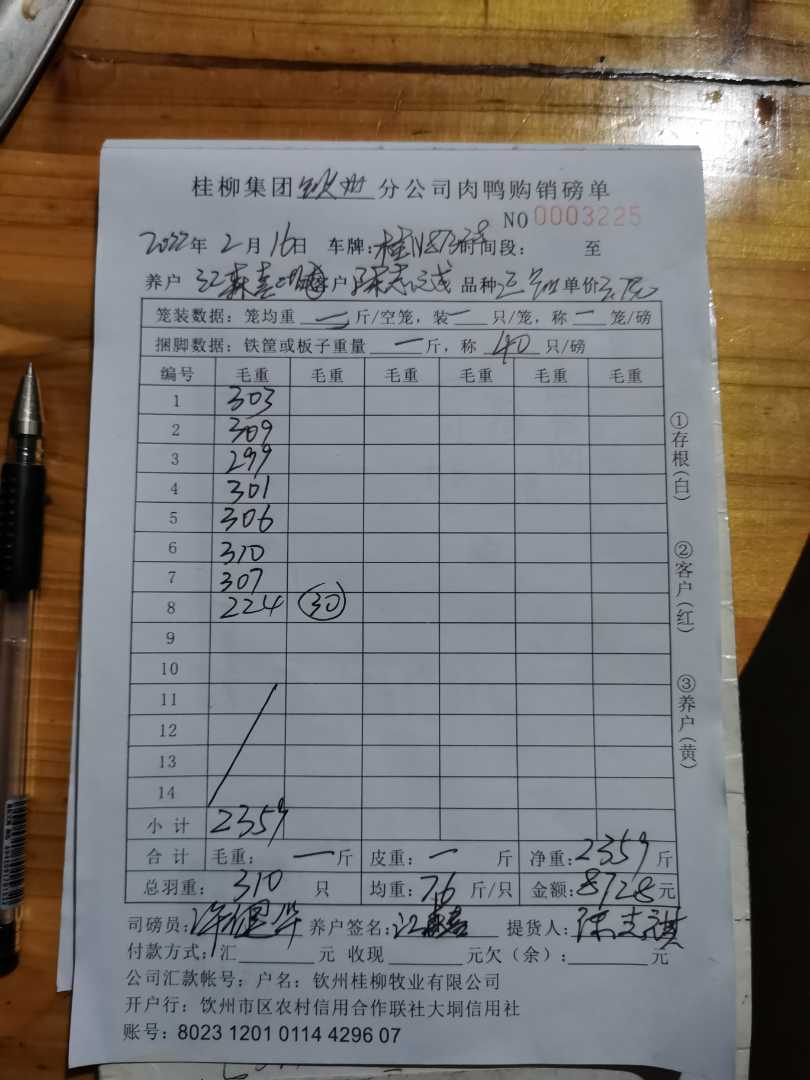 桂柳集团钦州分公司肉鸭购销磅单
NO 0003225
2022年 2月 16日 车牌: 时间段: 至
养户 江森喜 客户 品种 单价
笼装数据: 笼均重 一 斤/空笼, 装 一 只/笼, 称 一 笼/磅
捆脚数据: 铁筐或板子重量 一 斤, 称 40 只/磅
编号 毛重 毛重 毛重 毛重 毛重 毛重
1 303
2 309
3 299
4 301
5 306
6 310
7 307
8 224 30
9
10
11
12
13
14
小计 2359
合计 毛重: 一斤 皮重: 一 斤 净重: 2359 斤
总羽重: 310 只 均重: 7.6 斤/只 金额: 8728元
司磅员: 养户签名: 江森喜 提货人: 陈志祺
付款方式: 汇 元 收现 元欠(余): 元
公司汇款帐号; 户名: 钦州桂柳牧业有限公司
开户行: 钦州市区农村信用合作联社大垌信用社
账号: 8023 1201 0114 4296 07
①存根(白)
②客户(红)
③养户(黄)